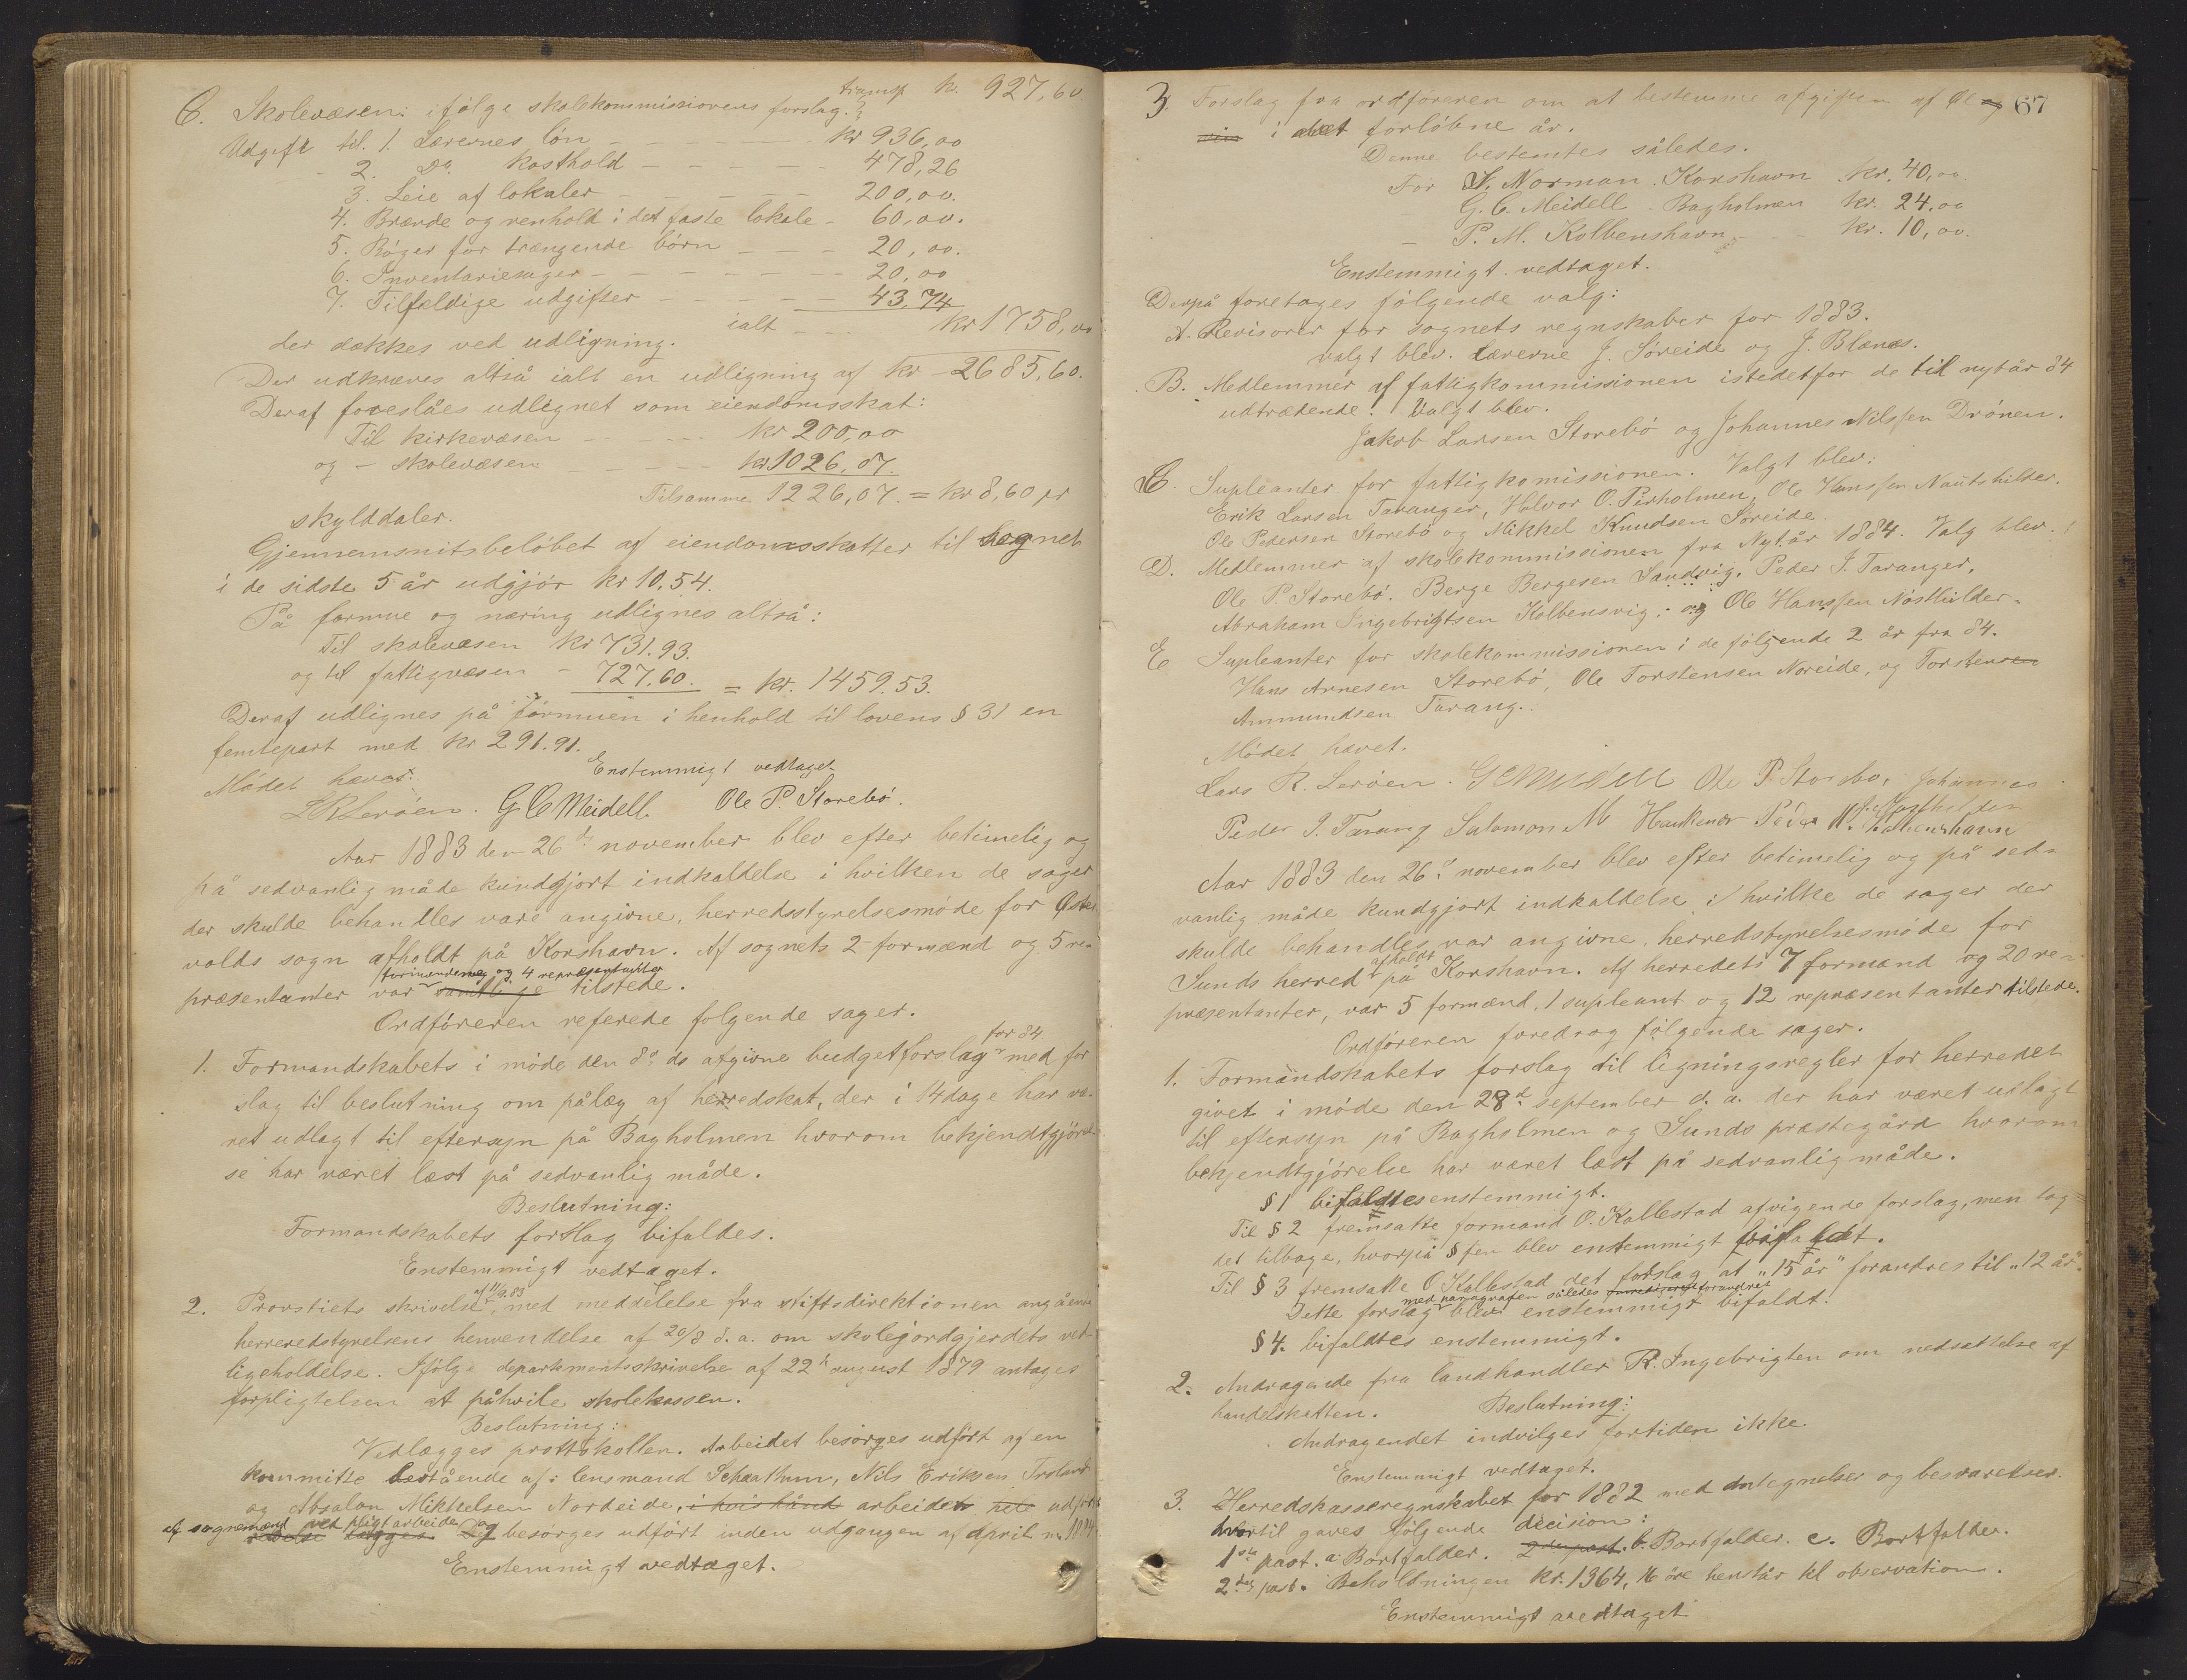 transp kr. 927,60.
C. Skolevæsen: ifølge skolekommissionens forslag.
Udgift til 1. Lærernes løn - - - - kr 936,00
- 2. Do. kosthold - - - - 478,26
3. Leie af lokaler - - - - 200,00.
4. Brænde og renhold i det faste lokale - 60,00.
5. Bøger for trængende børn - - 20,00.
6. Inventariesager - - - - - 20,00
7. Tilfældige udgifter - - - - - 43,74
ialt - - - kr 1758,00
der dækkes ved udligning.
Der udkræves altså ialt en udligning af kr - 2685,60.
Deraf foreslåes udlignet som eiendomsskat:
Til kirkevæsen - - - - - kr 200,00
og - skolevæsen - - - - - kr 1026,07.
Tilsamme 1226,07. = kr 8,60 pr
skylddaler.
Gjennemsnitsbeløbet af eiendomsskatter til sognet
i de sidste 5 år udgjør kr 10,54.
På formue og næring udlignes altså:
Til skolevæsen kr 731.93.
og til fattigvæsen - 727,60. = kr. 1459.53.
Deraf udlignes på formuen i henhold til lovens § 31 en
femtepart med kr 291.91.
Enstemmigt vedtaget
Mødet hævet.
L R Lerøen. G C Meidell. Ole P. Storebø.
Aar 1883 den 26de november blev efter betimelig og
på sedvanlig måde kundgjort indkaldelse i hvilken de sager
der skulde behandles vare angivne, herredsstyrelsesmøde for Øster
volds sogn afholdt på Korshavn. Af sognets 2 formænd og 5 re-
formændene og 4 repræsentanter
præsentanter var samtlige tilstede.
Ordføreren referede følgende sager.
for 84
1. Formandskabets i møde den 8d. ds afgivne budgetforslag med for
slag til beslutning om pålæg af herredskat, der i 14 dage har væ-
ret udlagt til eftersyn på Bagholmen hvorom bekjendtgjørel-
se har været læst på sedvanlig måde.
Beslutning:
Formandskabets forslag bifaldes.
Enstemmigt vedtaget.
af 11/9 83
2. Provstiets skrivelse, med meddelelse fra stiftsdirektionen angåenne
herreredstyrelsens henvendelse af 20/8 d. a. om skolejordgjerdets ved-
ligeholdelse. Ifølge departementsskrivelse af 22de august 1879 antages
forpligtelsen at påhvile skolekassen.
Beslutning:
Vedlægges prottokollen. Arbeidet besørges udført af en
kommitte bestående af: lensmand Schaathun, Nils Eriksen Trsland
og Absalon Mikkelsen Nordeide, i hvis hånd arbeidets udført
af sognemænd ved pligtarbeide og
lægges Og besørges udført inden udgangen af april m. 1884.
Enstemmigt vedtaget.
67
3. Forslag fra ordføreren om at bestemme afgiften af Øl og
vin i det forløbne år.
Denne bestemtes således.
For S. Norman. Korshavn kr. 40,00.
G. C. Meidell Bagholmen kr. 24,00
- P. M. Kolbenshavn - - kr. 10,00.
Enstemmigt vedtaget.
Derpå foretages følgende valg:
A. Revisorer for sognets regnskaber for 1883.
valgt blev. Lærerne J. Søreide og J. Blænes.
B. Medlemmer af fattigkommissionen istedetfor de til nytår 84
udtrædende. Valgt blev.
Jakob Larsen Storebø og Johannes Nilssen Drønen.
C. Supleanter for fattigkomissionen. Valgt blev:
Erik Larsen Taranger, Halvor O. Pirholmen, Ole Hanssen Nautshilder.
Ole Pedersen Storebø og Mikkel Knudsen Søreide.
D. Medlemmer af skolekommissionen fra Nytår 1884. Valg blev.
Ole P. Storebø. Berge Bergesen Sandvig, Peder J. Taranger,
Abraham Ingebrigtsen Kolbensvig, og Ole Hanssen Nøsthilder.
E Supleanter for skolekommissionen i de følgende 2 år fra 84.
Hans Arnesen Storebø, Ole Torstensen Noreide, og Torstensen
Ammundsen Tarang.
Mødet hævet.
Lars R. Lerøen. G C Meidell Ole P. Storebø, Johannes
Peder J. Tarang Salomon M Haukenes Peder M. Kolbenshavn
Aar 1883 den 26d. november blev efter betimelig og på sed-
vanlig måde kundgjort indkaldelse i hvilke de sager der
skulde behandles var angivne, herredstyrelsesmøde for
afholdt
Sunds herred på Korshavn. Af herredets 7 formænd og 20 re-
præsentanter, var 5 formænd, 1 supleant og 12 repræsentanter tilstede.
Ordføreren foredrog følgende sager.
1. Formandskabets forslag til ligningsregler for herredet
givet i møde den 28d. september d. a. der har været udlagt
til eftersyn på Bagholmen og Sunds præstegård hvorom
bekjendtgjørelse har været læst på sedvanlig måde.
§ 1 bifaldtes enstemmigt.
Til § 2 fremsatte formand O. Kallestad afvigende forslag, men tog
det tilbage, hvorpå § fen blev enstemmigt bifaldet.
Til § 3 fremsatte O. Kallestad det forslag at "15 år" forandres til "12 år".
med paragrafen således forandret
Dette forslag blev enstemmigt bifaldt.
§ 4. bifaldtes enstemmigt.
2. Andragende fra landhandler R. Ingebrigten om nedsættelse af
handelskatten. Beslutning:
Andragendet indvilges fortiden ikke.
Enstemmigt vedtaget.
3. Herredskasseregnskabet for 1882 med Antegnelser og besvarelser.
hvortil gaves følgende decision:
1ste post. a. Bortfalder. 2den post. b. Bortfalder. c. Bortfalder.
2den post. Beholdningen kr. 1364, 16 øre henstår til observation.
Enstemmigt vedtaget